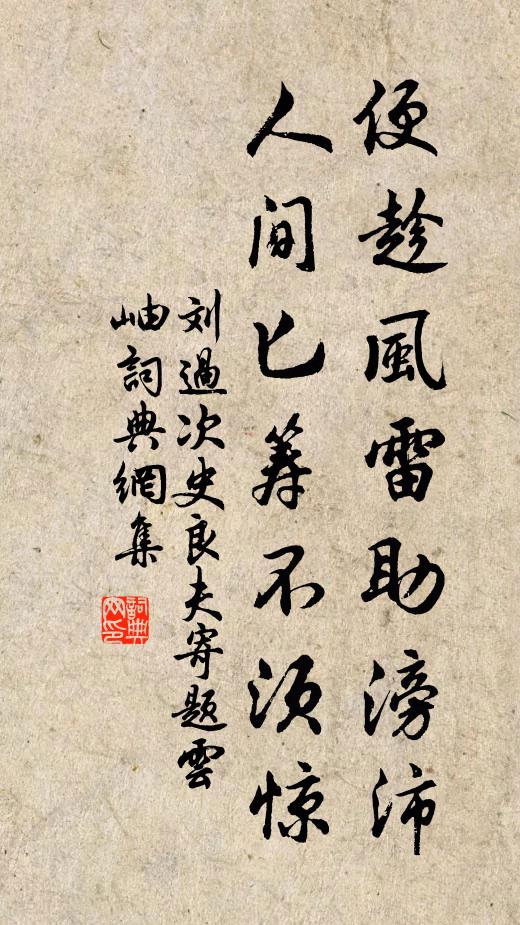 便趁風雷助滂沛
人间匕箸不须惊
刘過次史良夫寄题雲
岫詞典網集
詞典网印